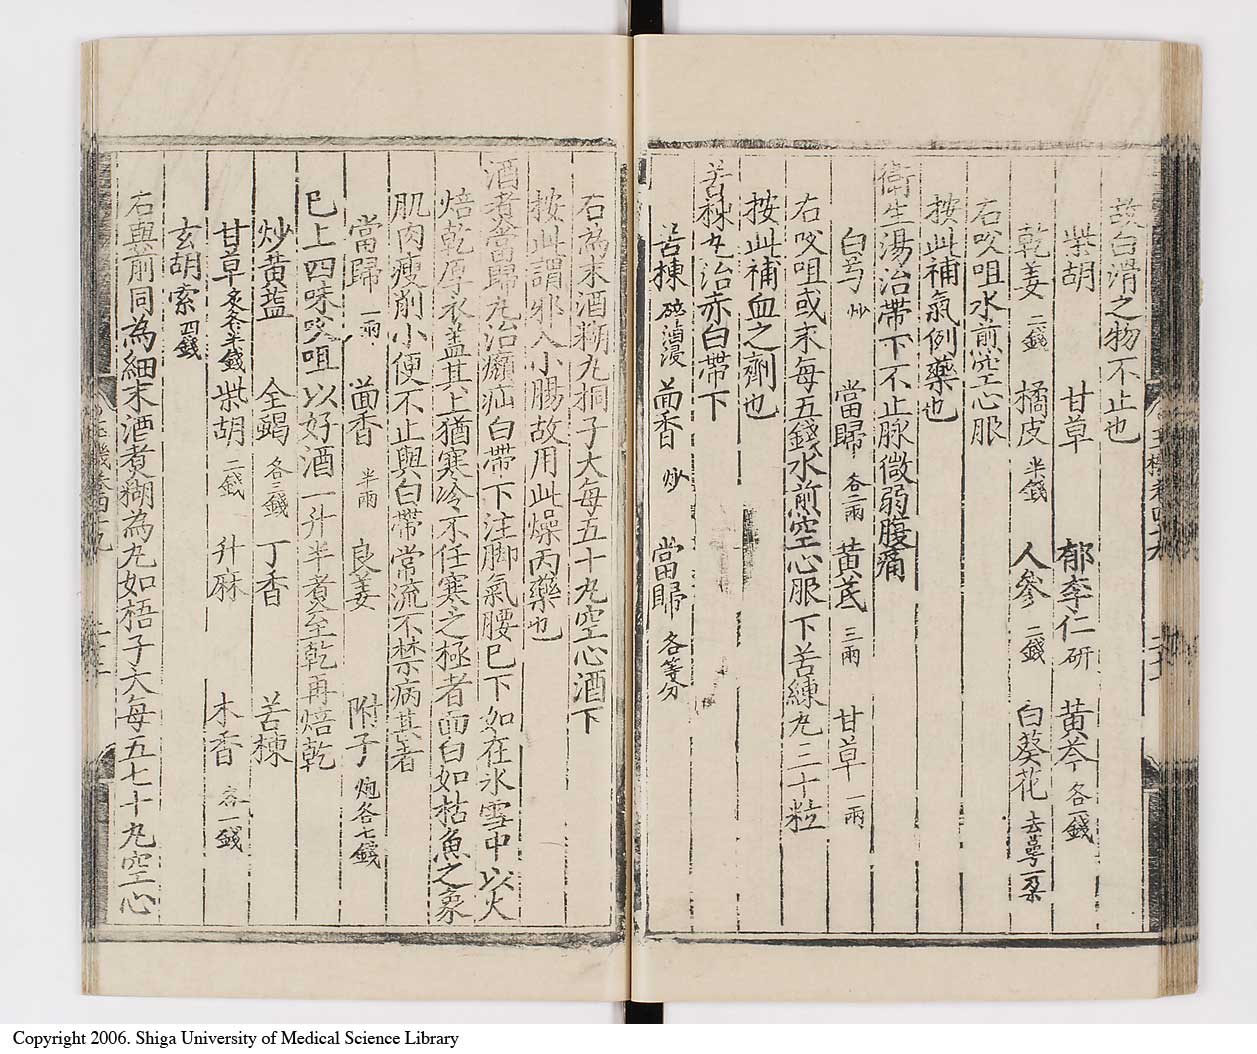 故白滑之物不止也
柴胡 甘草 郁李仁研 黄芩各一錢
乾姜二錢 橘皮半錢 人參二錢 白葵花去萼一朶
右㕮咀水煎空心服
按此補氣例藥也
衛生湯治帶下不止脉微弱腹痛
白芎炒 當歸各二兩 黄芪三兩 甘草一兩
右㕮咀或末每五錢水煎空心服下苦練丸三十粒
按此補血之劑也
苦楝丸治赤白帶下
苦楝 茴香炒 當歸各等分
右為末酒糊丸桐子大每五十丸空心酒下
按此謂邪入小腸故用此燥丙藥也
酒煮當歸丸治㿗疝白帶下注脚氣腰巳下如在氷雪中以火
焙乾厚衣盖其上猶寒冷不任寒之極者面白如枯魚之象
肌肉瘦削小便不止與白帶常流不禁病其者
當歸一兩 茴香半兩 良姜 附子炮各七錢
巳上四味㕮咀以好酒一升半煮至乾再焙乾
炒黄盐 全蝎各三錢 丁香 苦楝
甘草炙各半錢 柴胡二錢 升麻 木香各一錢
玄胡索四錢
右與前同為細末酒煮糊為丸如梧子大每五七十丸空心
Copyright 2006. Shiga University of Medical Science Library